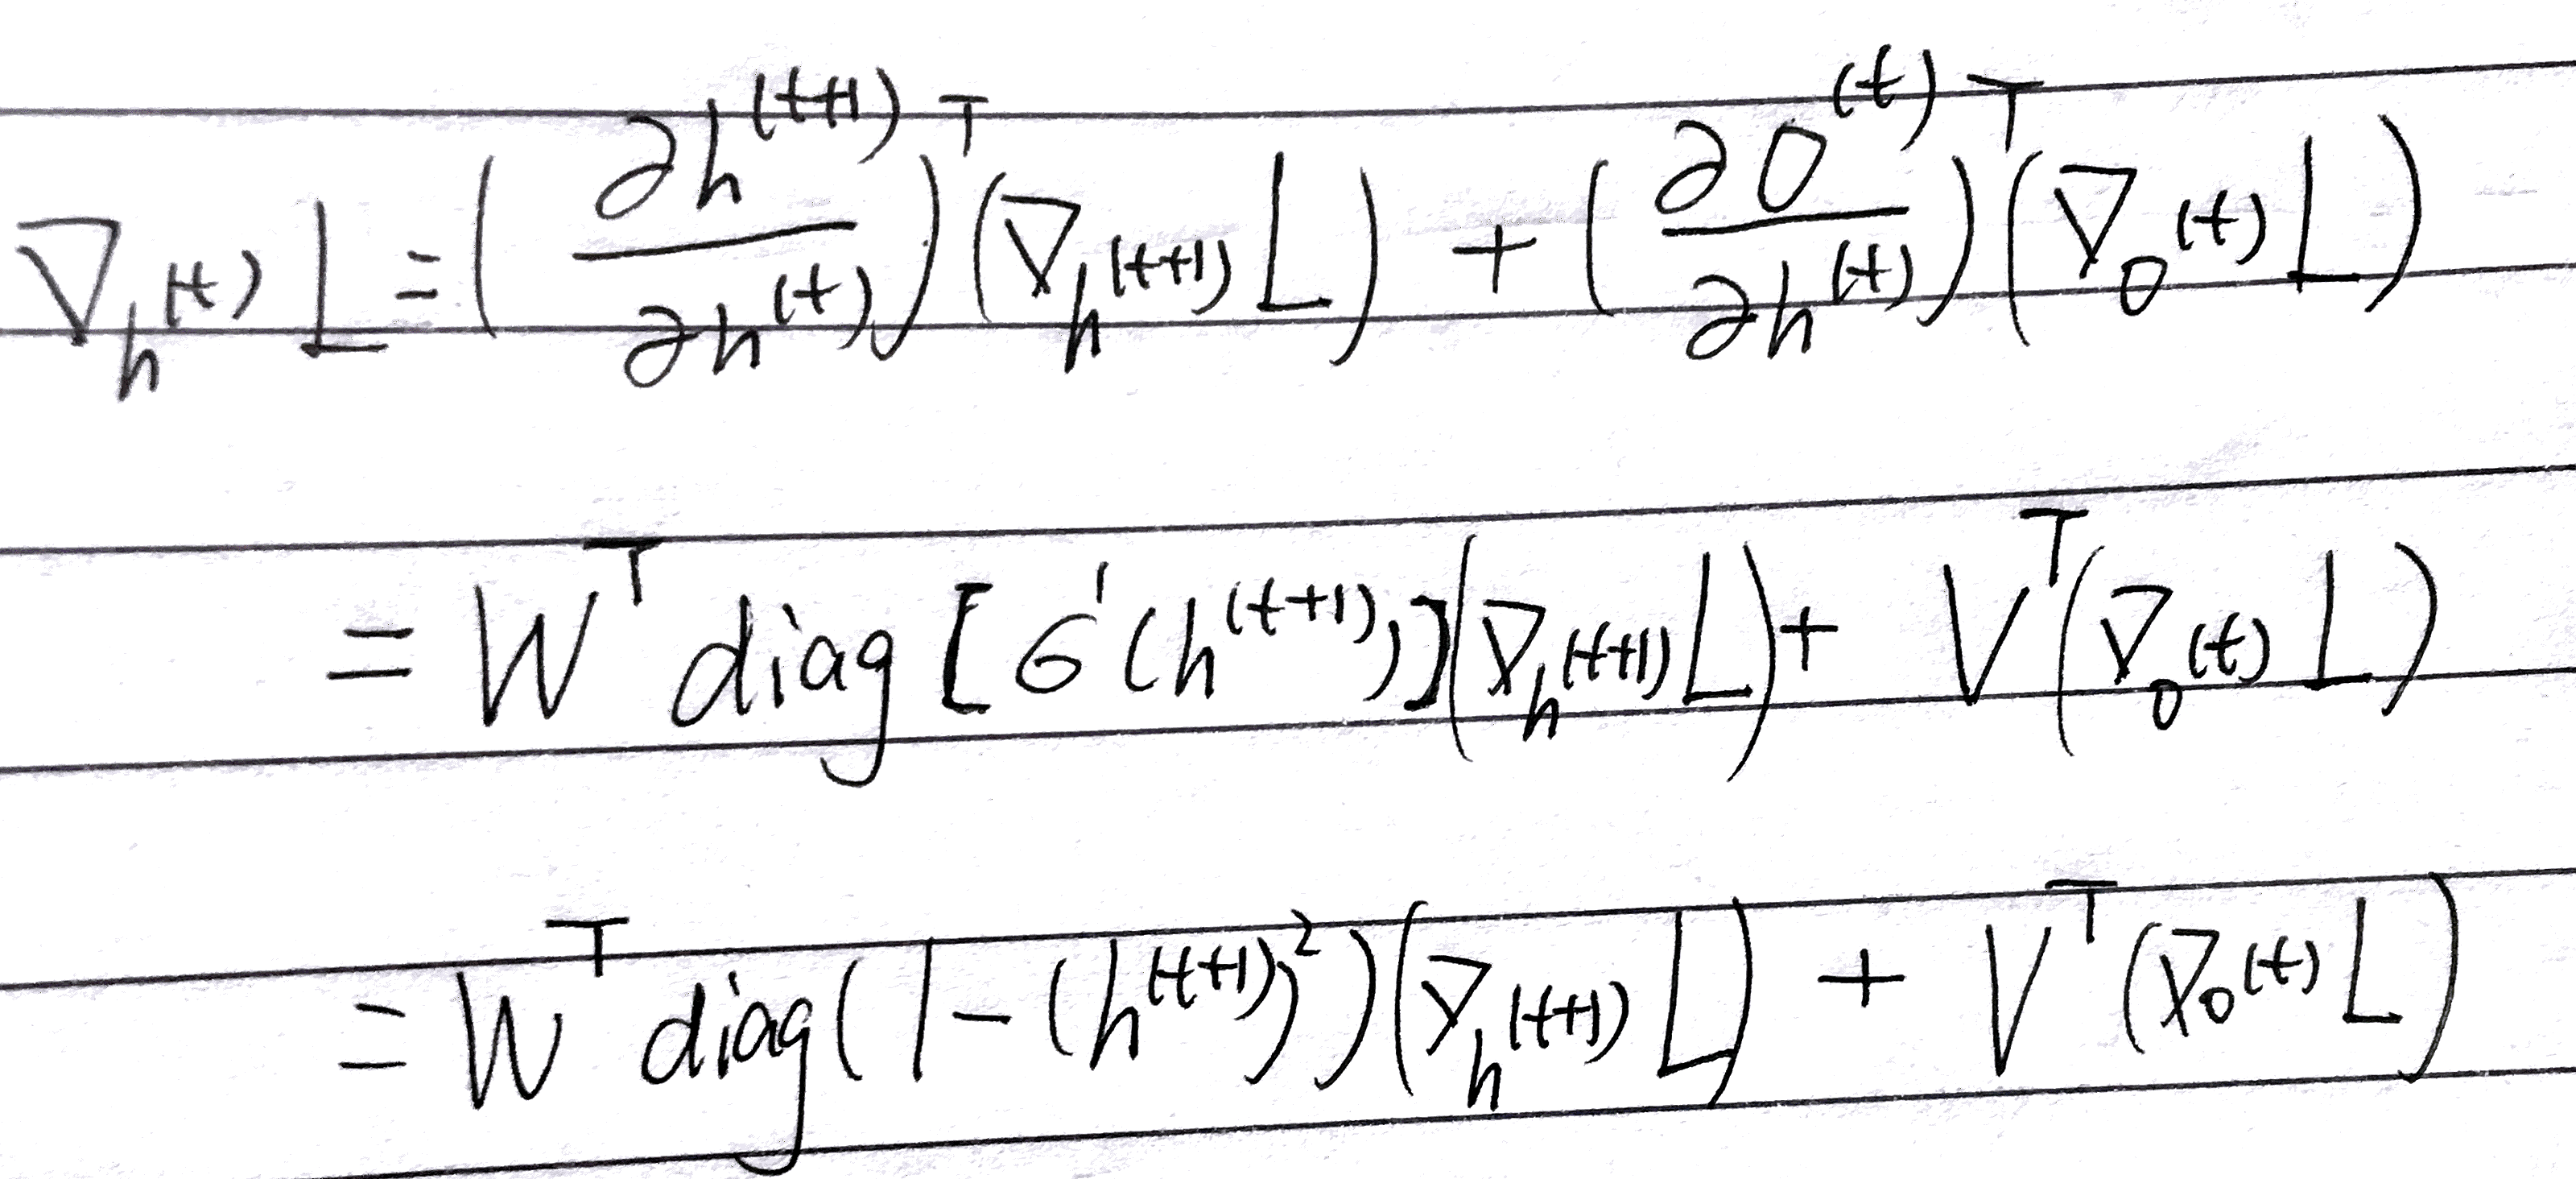 ∇_{h^{(t)}} L = (∂h^{(t+1)} / ∂h^{(t)})^T (∇_{h^{(t+1)}} L) + (∂o^{(t)} / ∂h^{(t)})^T (∇_{o^{(t)}} L)
= W^T diag[σ'(h^{(t+1)})](∇_{h^{(t+1)}} L) + V^T (∇_{o^{(t)}} L)
= W^T diag(1 - (h^{(t+1)})^2)(∇_{h^{(t+1)}} L) + V^T (∇_{o^{(t)}} L)